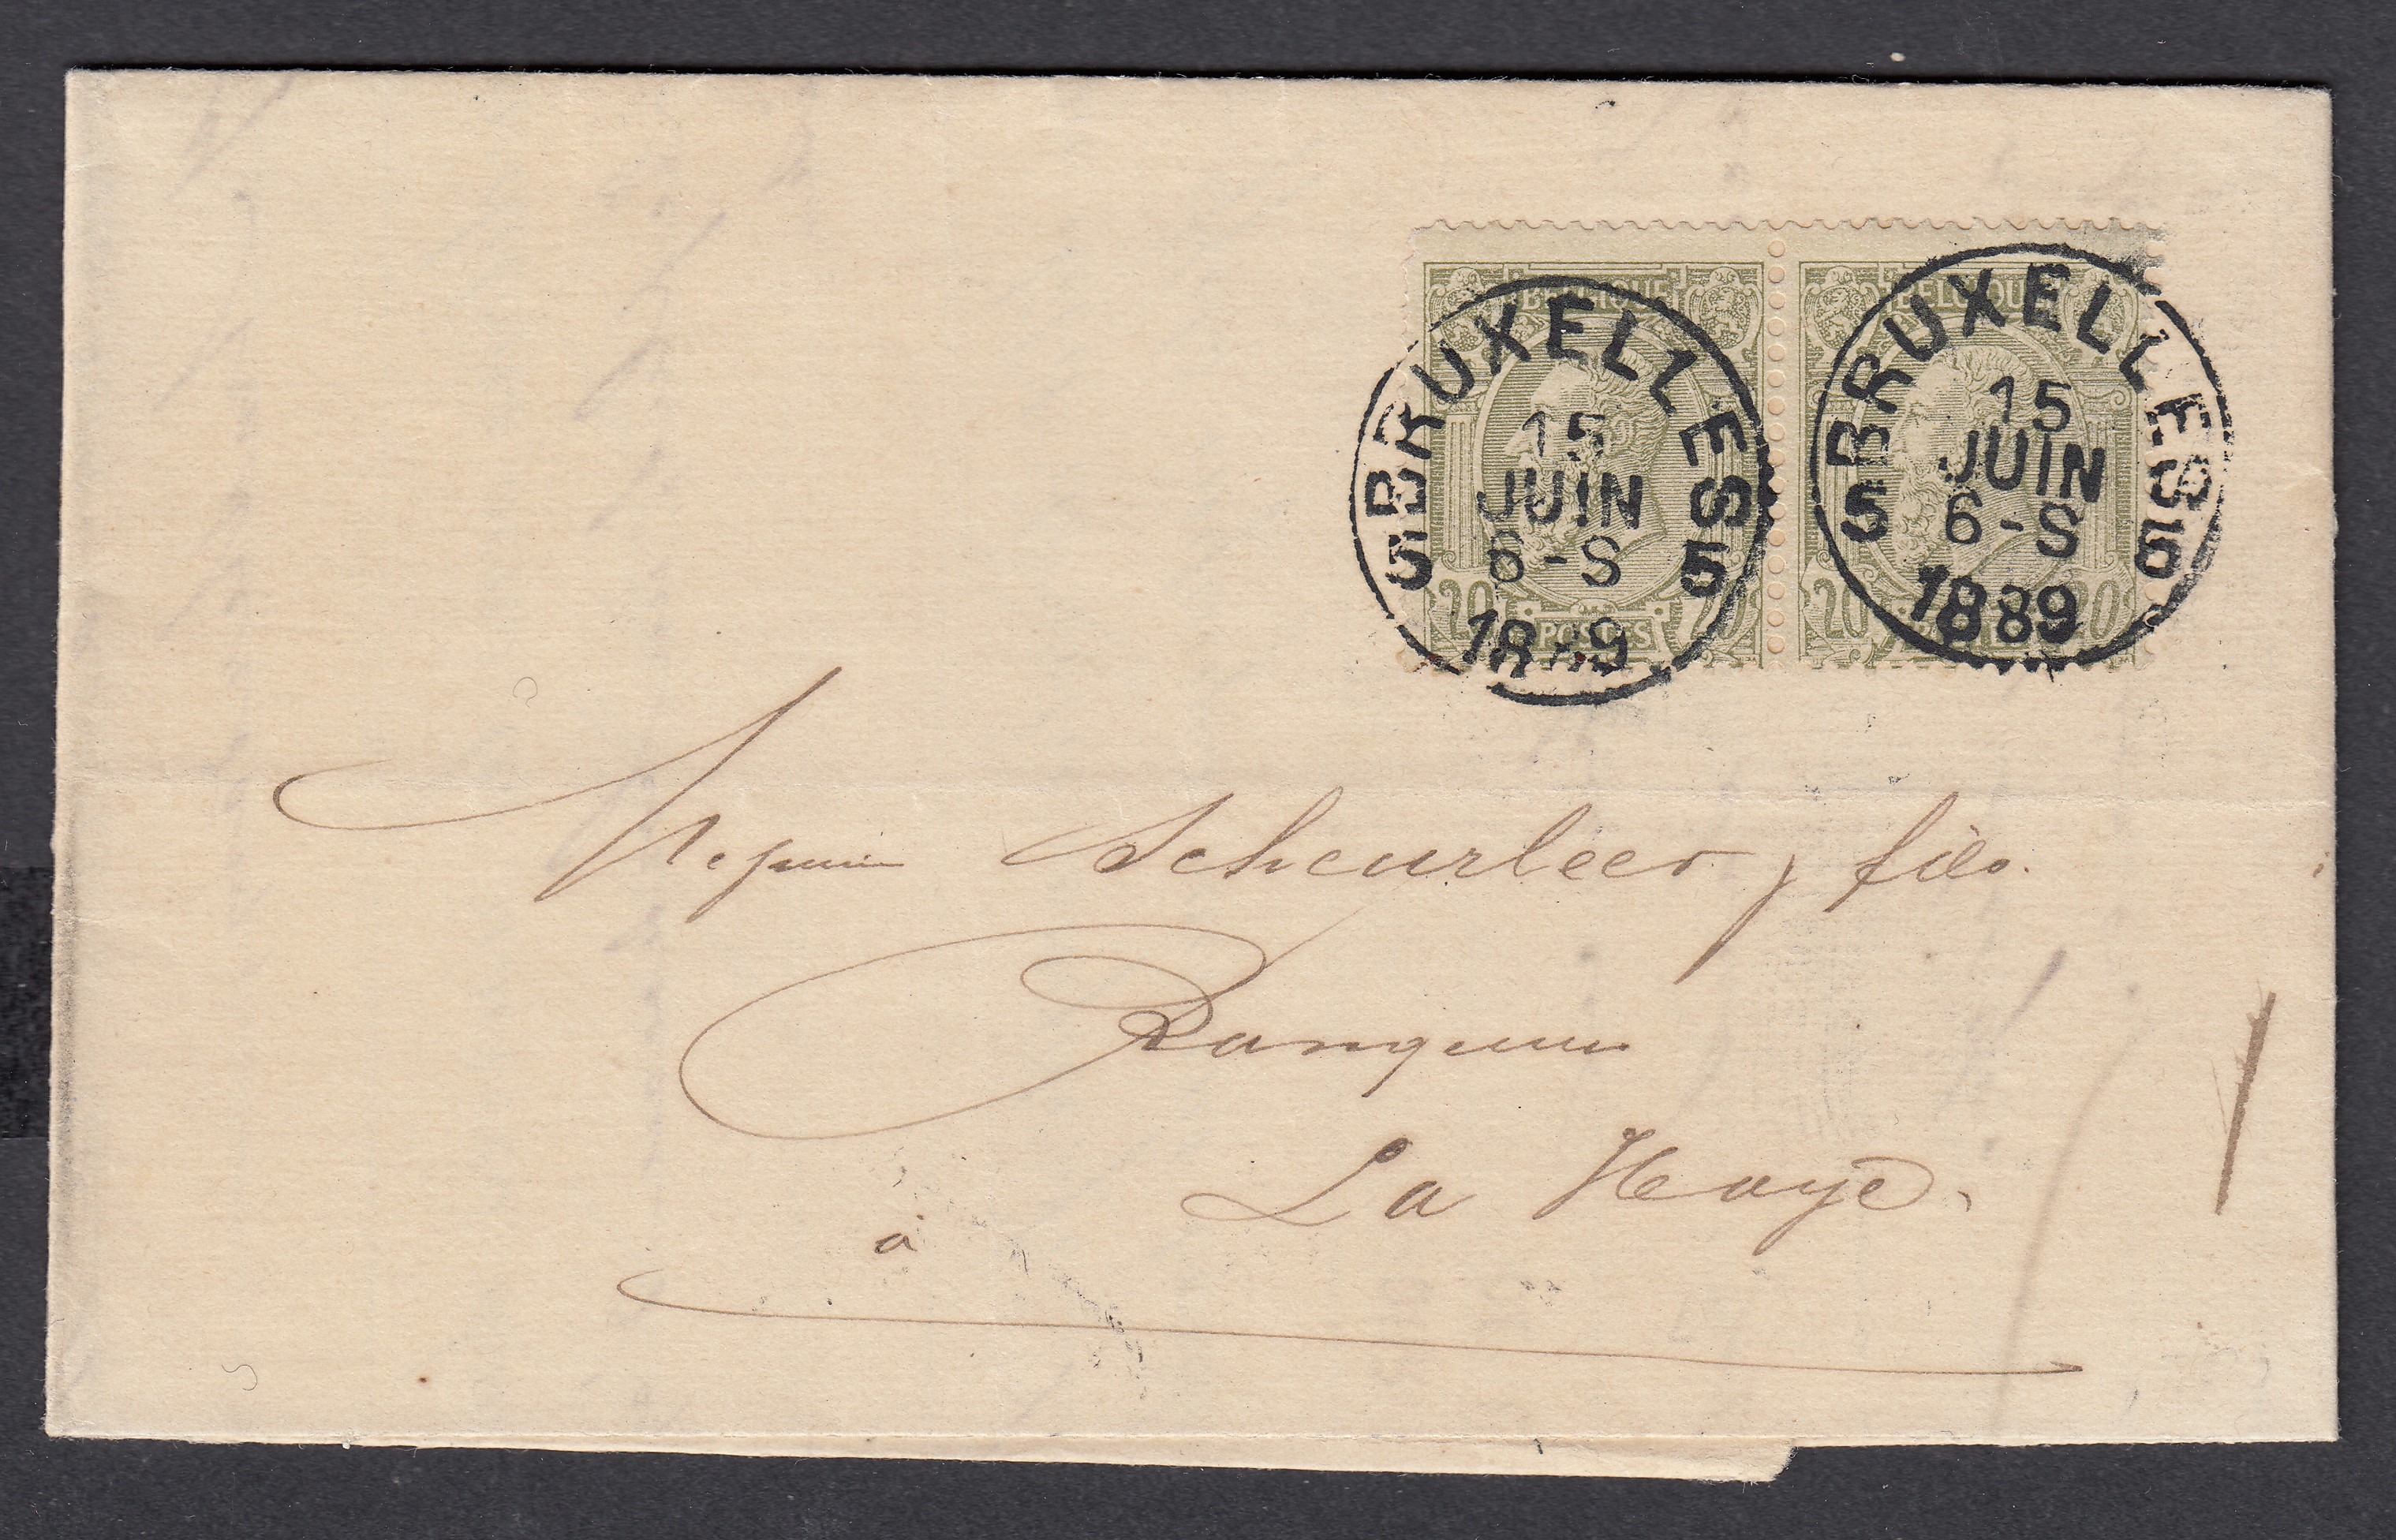 BELGIQUE BELGIQUE
BRUXELLES BRUXELLES
15 15
JUIN JUIN
5 6-S 5 5 6-S 5
1889 1889
20 20 20 20
POSTES
Scheurleer, fils.
Banquiers
La Haye.
à